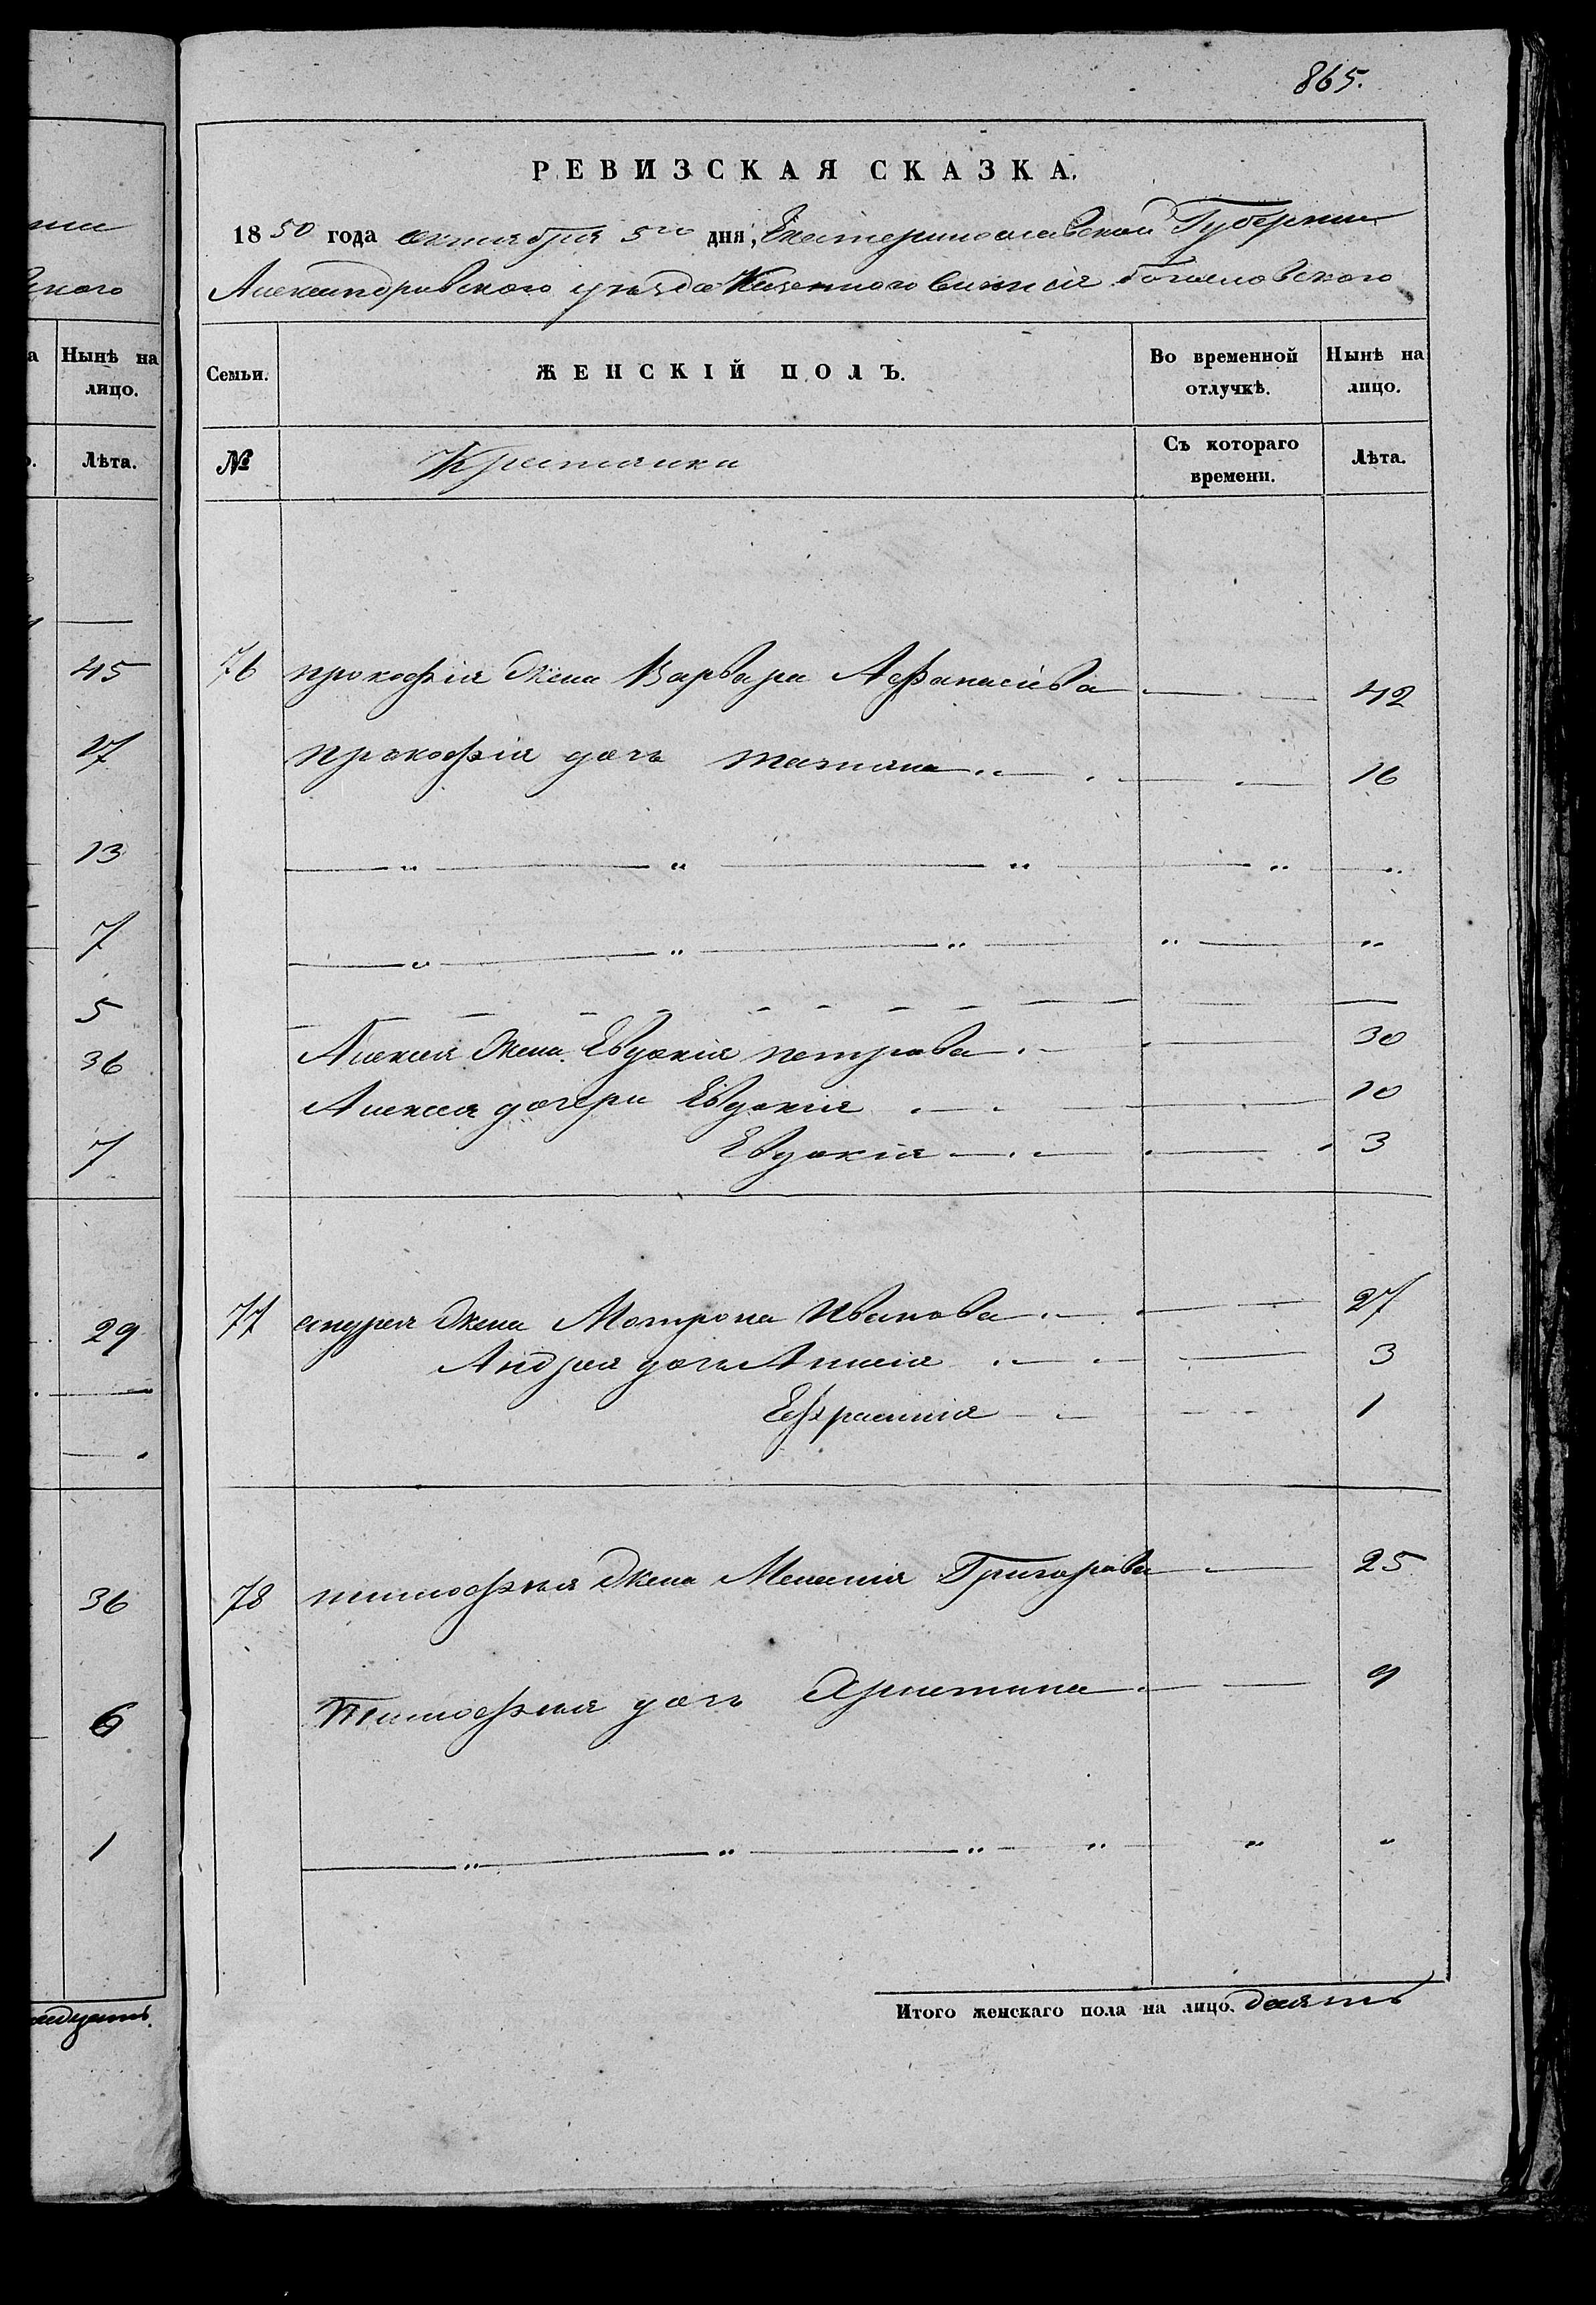 865.
РЕВИЗСКАЯ СКАЗКА.
1850 года октября 5го дня, Екатеринославской Губернии
Александровского уезда Казенного селенія
Семьи. ЖЕНСКІЙ ПОЛЪ. Во временной отлучкѣ. Нынѣ на лицо.
№ Крестянки Съ котораго времени. Лѣта.
76 прокофія жена Варвара Афанасіева 42
прокофія дочь татіяна 16
Алексея жена Евдокія петрова 30
Алексея дочери Евдокія 10
Евдокія 3
77 андрея жена Мотрона Иванова 27
Андрея дочь Анисія 3
Ефрасинія 1
78 тимофея жена Меланія Григорова 25
Тимофея дочь Христина 9
Итого женскаго пола на лицо десять
ского
Нынѣ на лицо.
Лѣта.
45
17
13
7
5
36
7
29
36
6
1